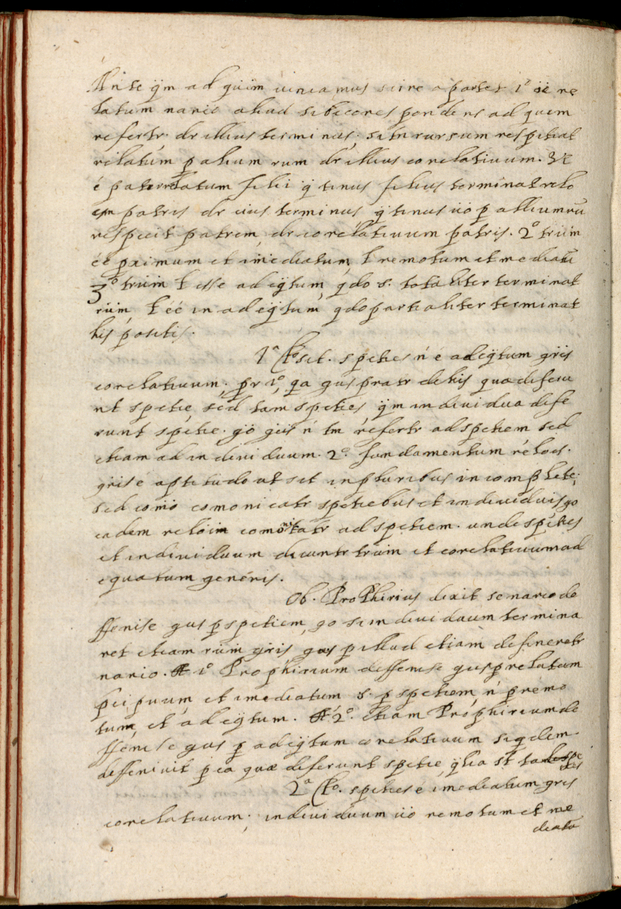 Ante qm ad quim vinia mus scire oportet 1º oē re
latum nario aliud sibi corespondens ad quem
refertr dr illius terminus. si tn rursum respitiat
relatum p alium rum dr illius corelativum. Ve
ē pater relatum filii q tinus filius terminat relo
em patris dr eius terminus q tinus uo p allium rum
respicit patrem, dr corelativum patris. 2º trium
ēē proximum et imediatum, t remotum et mediatu
3º trium t esse adeqtum, qdo s. totaliter terminat
rum t ēē inadeqtum, qdo partialiter terminat
his positis.
1ª Clo sit. species ñ ē adeqtum gris
corelativum. pr 1º, qa gus pratr de his qua diferu
nt spetie, sed tam speties, qm individua dife
runt spetie. go gus ñ tm refertr ad spetiem sed
etiam ad individuum. 2º. fundamentum relois
gris ē aptitudo ut sit in pluribus incomplete;
sed comō comonicatr spetiebus et individuis go
eadem reloim ad spetiem. unde spities
et individuum dicuntr trum et corelativum ad
equatum generis.
Ob. Prophirius dixit se nario de
ffenise gus p spetiem, go si individuum termina
ret etiam rum gris, gus p illud etiam definiretr
nario. R 1º Prophirium deffenise gus p relatum
pcipuum et imediatum s. p spetiem ñ p remo
tum, et adeqtum. R 2º. Etiam Prophirium de
ffenise gus p adeqtum corelativum siqdem
deffenivit p ea quæ diferunt spetie qlia st tam spe
2ª Clo. spities ē imediatum gris
corelativum, individuum uo remotum et me
diatu